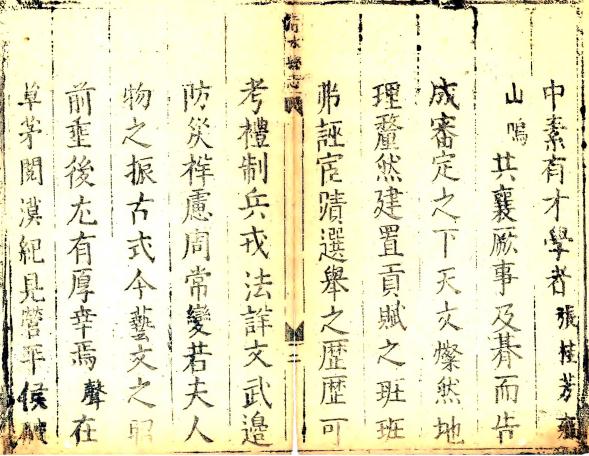 中素有才學者張桂芳雍
山鳴共襄厥事及朞而告
成審定之下天文燦然地
理釐然建置貢賦之班班
弗誣宦蹟選舉之歴歴可
清水縣志
二
考禮制兵戎法詳文武邊
防災祥慮周常變若夫人
物之振古式今藝文之昭
前垂後尤有厚幸焉聲在
草茅閱漢紀見營平侯